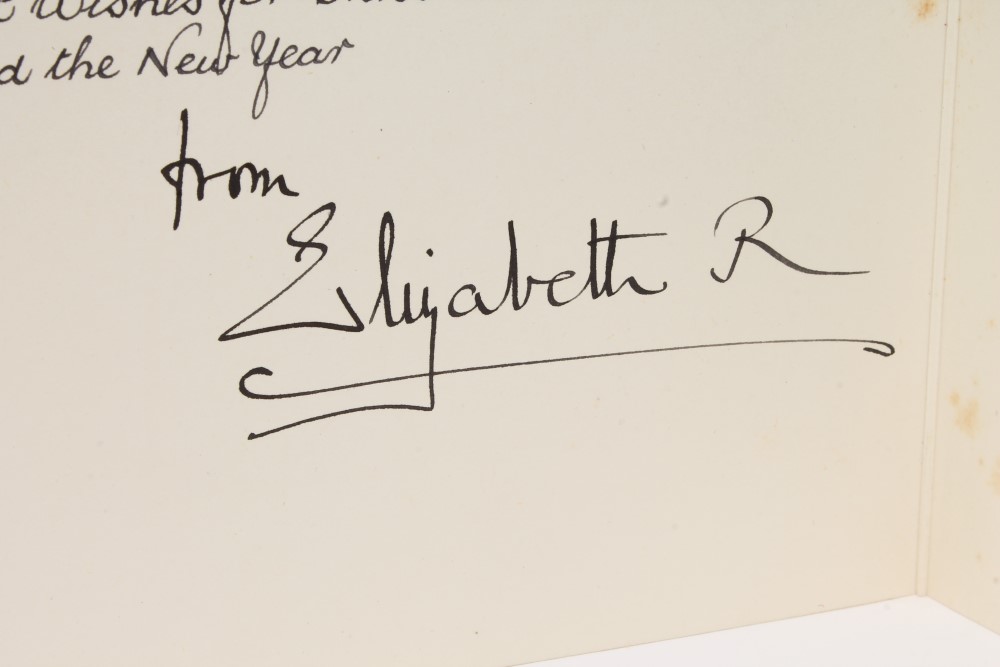 Wishes for
the New Year
from
Elizabeth R